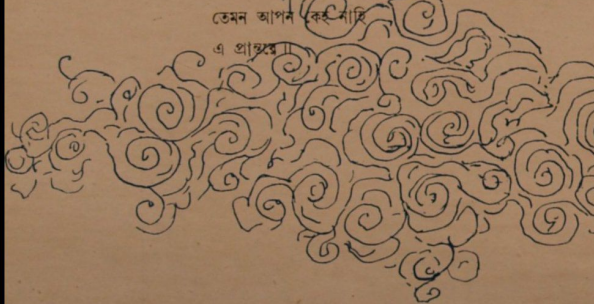 তেমন আপন কেহ নাহি
এ প্রান্তরে॥